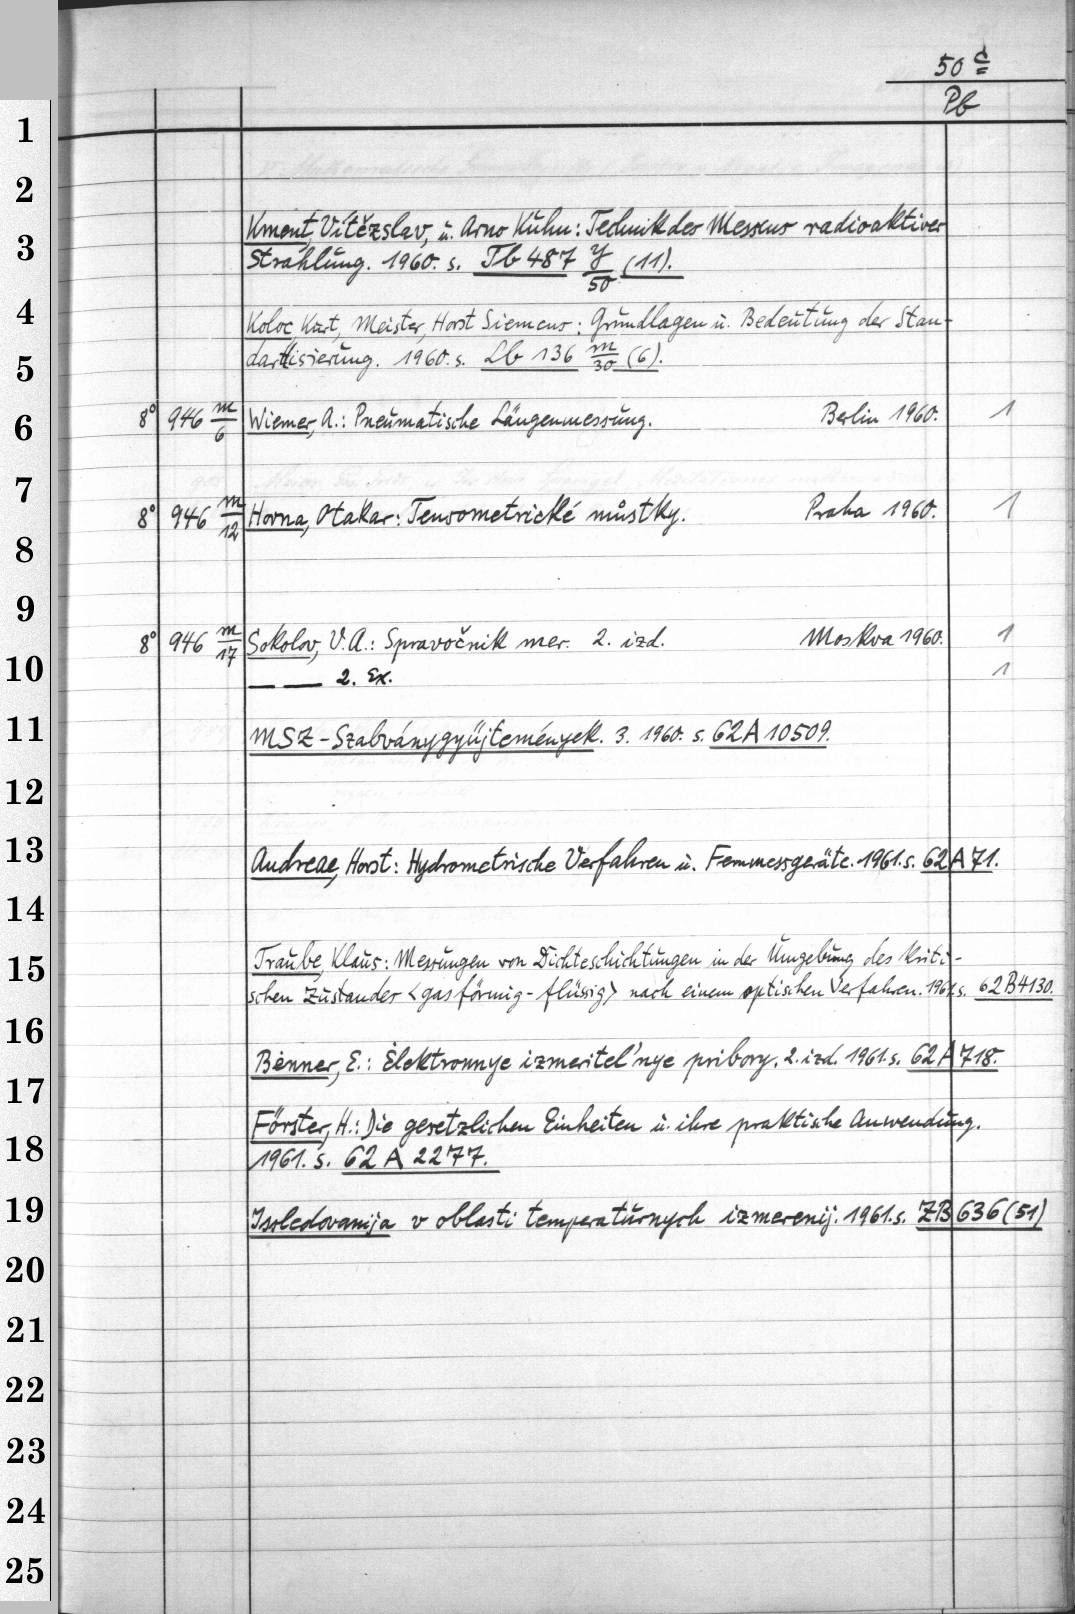 50 c
Pb
1
2
Kment, Vítězslav, u. Arno Kuhn: Technik des Messens radioaktiver
3
Strahlung. 1960. s. Tb 487 y/50 (11).
4
Koloc, Kurt, Meister, Horst Siemens: Grundlagen u. Bedeutung der Stan-
5
dardisierung. 1960. s. Lb 136 m/30 (6).
6
8° 946 m/6 Wiemer, A.: Pneumatische Längenmessung. Berlin 1960. 1
7
8° 946 m/12 Horna, Otakar: Tensometrické můstky. Praha 1960. 1
8
9
8° 946 m/17 Sokolov, V.A.: Spravočnik mer. 2. izd. Moskva 1960. 1
10
— — 2. Ex. 1
11
MSZ-Szabványgyüjtemények. 3. 1960. s. 62A10509.
12
13
Andreae, Horst: Hydrometrische Verfahren u. Fernmessgeräte. 1961. s. 62A71.
14
15
Traube, Klaus: Messungen von Dichteschichtungen in der Umgebung des kriti-
schen Zustandes <gasförmig-flüssig> nach einem optischen Verfahren. 1961. s. 62B4130.
16
Benner, E.: Ėlektronnye izmeritel'nye pribory. 2. izd. 1961. s. 62A718.
17
Förster, H.: Die gesetzlichen Einheiten u. ihre praktische Anwendung.
18
1961. s. 62A2277.
19
Issledovanija v oblasti temperaturnych izmerenij. 1961. s. ZB636(51)
20
21
22
23
24
25